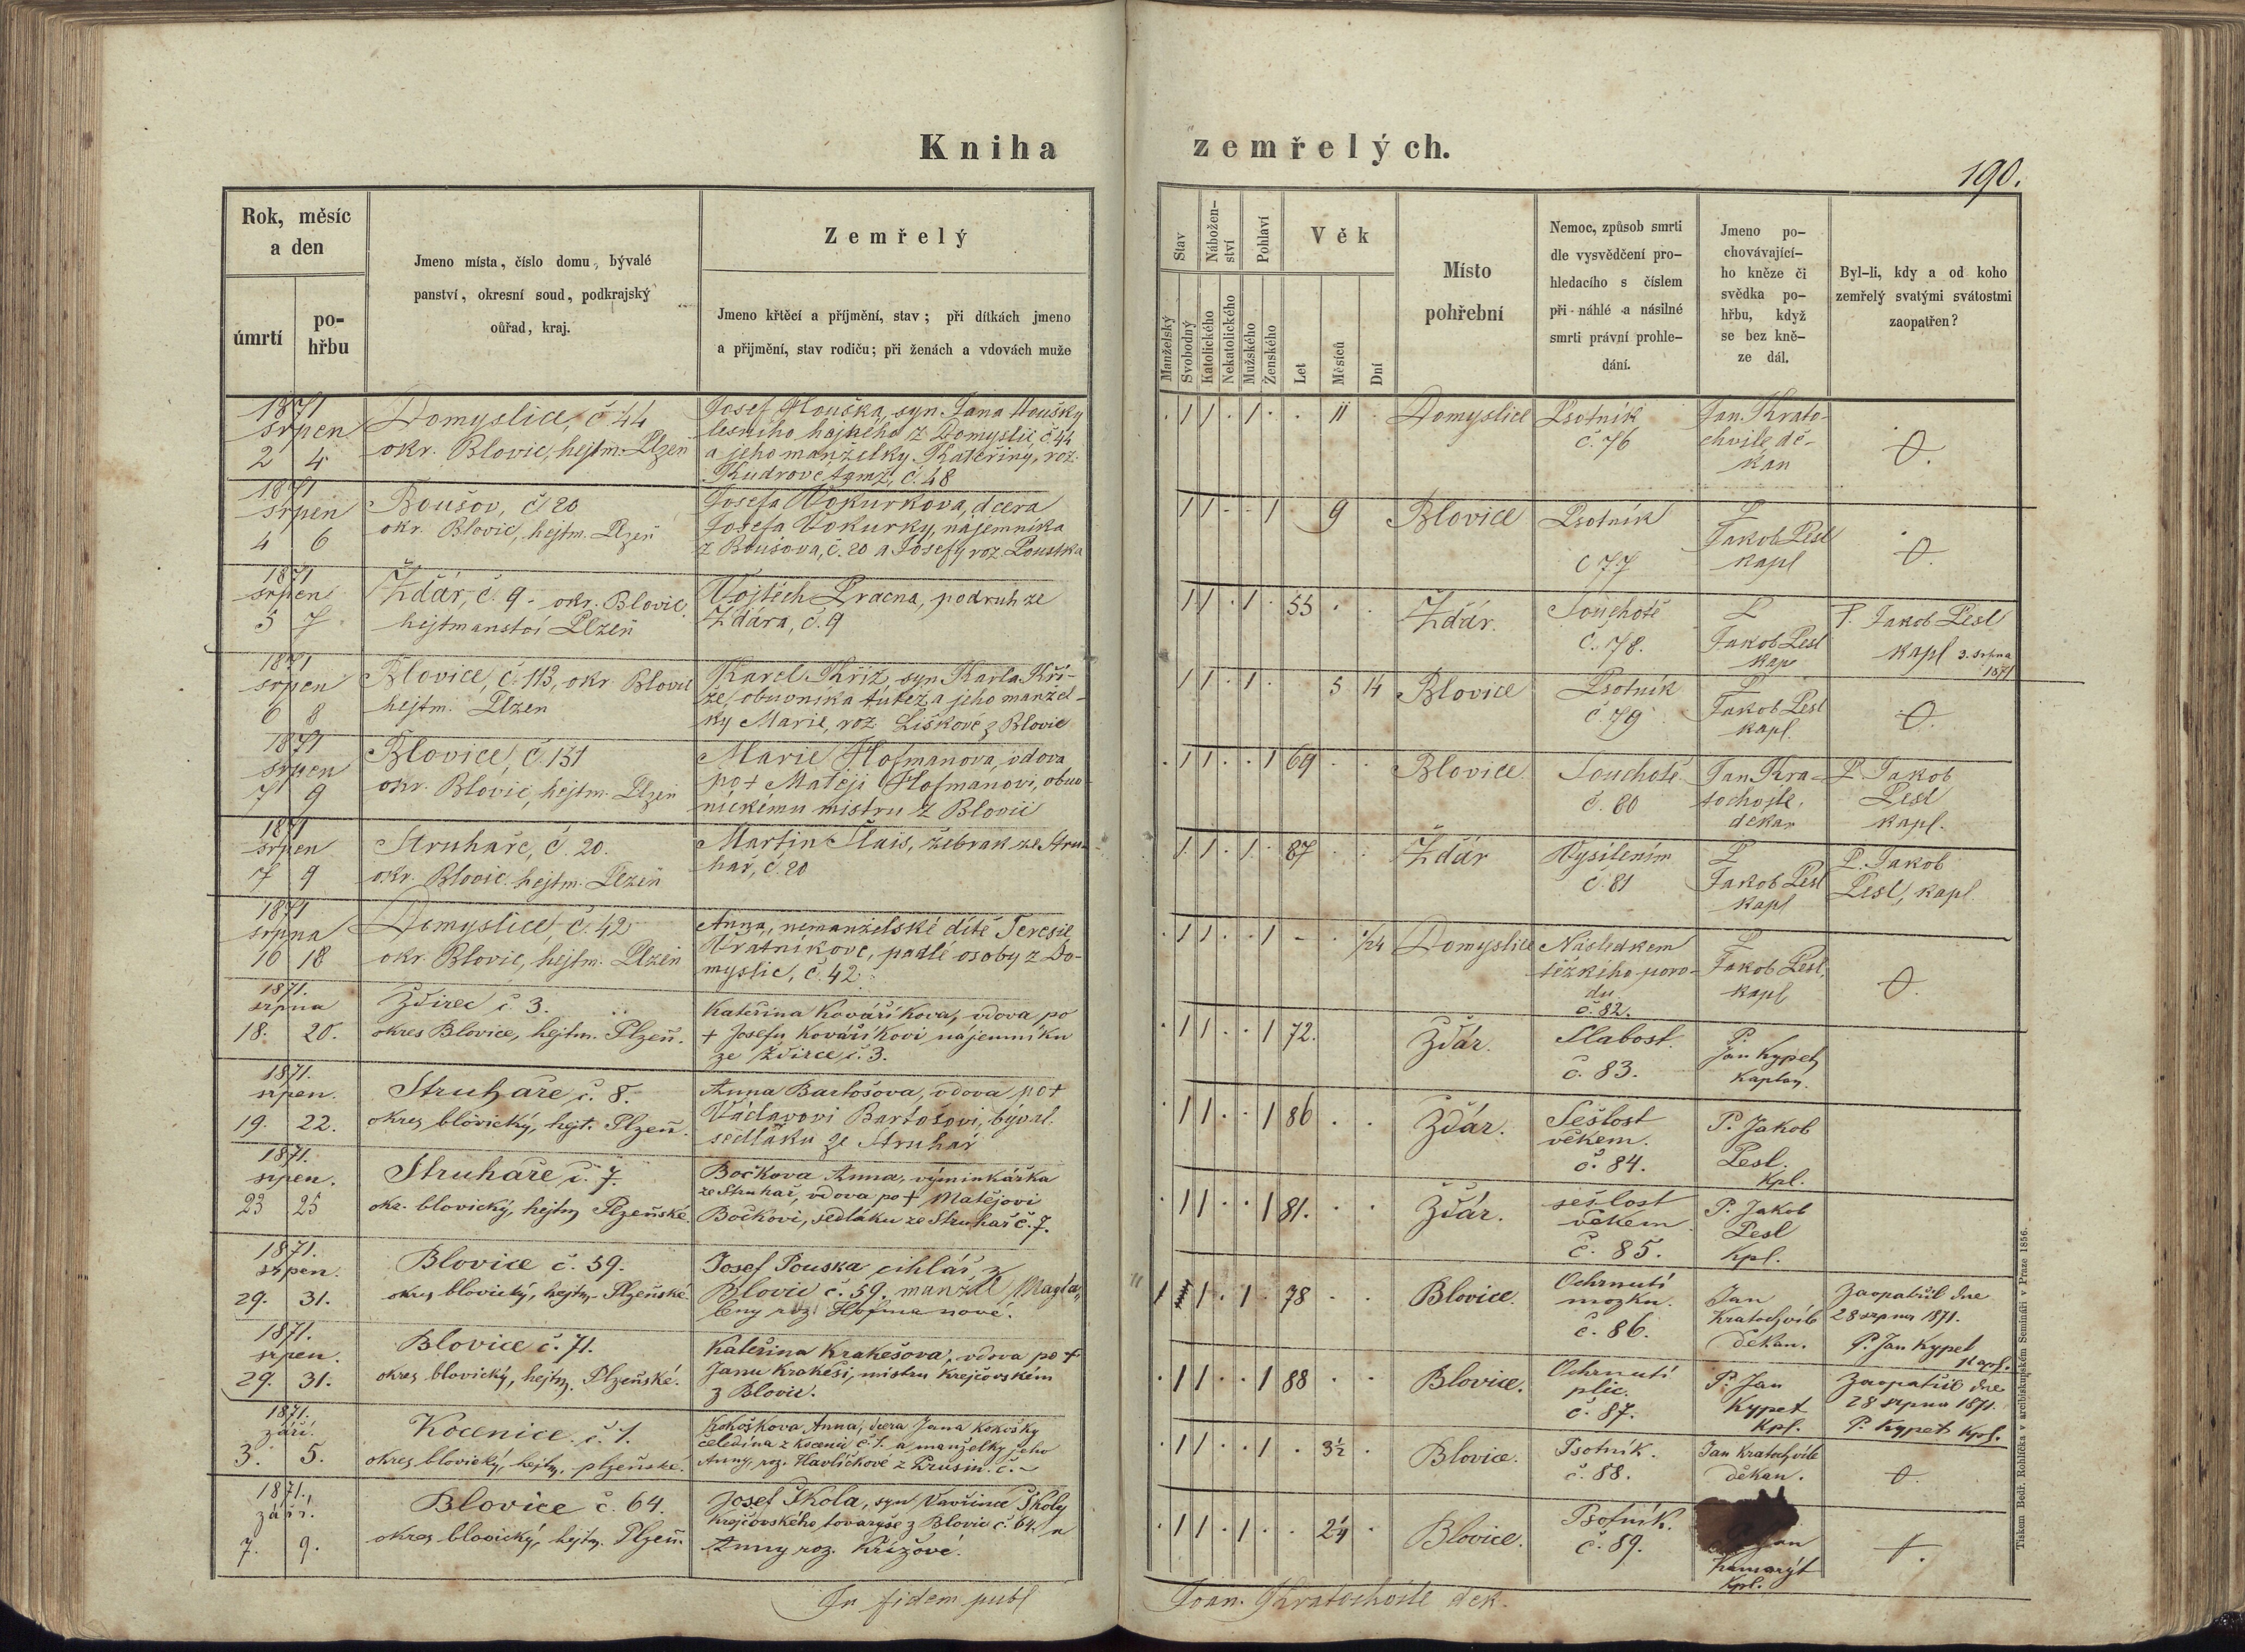 Kniha zemřelých.
190.
Rok, měsíc
a den
úmrtí
po-
hřbu
Jmeno místa, číslo domu, bývalé
panství, okresní soud, podkrajský
ouřad, kraj.
Zemřelý
Jmeno křtěcí a příjmění, stav; při dítkách jmeno
a přijmění, stav rodičů; při ženách a vdovách muže
Stav
Manželský
Svobodný
Nábožen-
ství
Katolického
Nekatolického
Pohlaví
Mužského
Ženského
Věk
Let
Měsíců
Dní
Místo
pohřební
Nemoc, způsob smrti
dle vysvědčení pro-
hledacího s číslem
při náhlé a násilné
smrti právní prohle-
dání.
Jmeno po-
chovávající-
ho kněze či
svědka po-
hřbu, když
se bez kně-
ze dál.
Byl-li, kdy a od koho
zemřelý svatými svátostmi
zaopatřen?
1871
srpen
2 4
Domyslice, č. 44
okr. Blovic, hejtm. Plzeň
Josef Houška, syn Jana Houšky
lesního hajného z Domyslic, č. 44
a jeho manželky Kateřiny, roz.
Kudrové tamž, č. 48
. 1 1 . 1 . . 11 .
Domyslice
Psotník
č. 76
Jan Krato-
chvile dě-
kan
0.
1871
srpen
4 6
Boušov, č 20
okr. Blovic, hejtm. Plzeň
Josefa Vokurkova, dcera
Josefa Vokurky, nájemníka
z Boušova, č. 20 a Josefy roz. Pouska
1 1 . . 1 . 9
Blovice
Psotník
č 77
P
Jakob Pesl
kapl
0.
1871
srpen
5 7
Ždár, č. 9. okr. Blovic
hejtmanství Plzeň
Vojtěch Pracna, podruh ze
Ždára, č. 9
1 1 . 1 . 55 . .
Ždár.
Souchotě
č. 78.
P
Jakob Pesl
kap
P. Jakob Pesl
kapl 3. srpna
1871
1871
srpen
6 8
Blovice, č. 113, okr. Blovic
hejtm. Plzeň
Karel Kříž, syn Karla Kří-
že, obuvníka tútéž a jeho manžel-
ky Marie, roz. Liškové z Blovic
1 1 . 1 . 5 14
Blovice
Psotník
č. 79
P
Jakob Pesl
kapl.
0.
1871
srpen
7 9
Blovice, č. 131
okr. Blovic, hejtm. Plzeň
Marie Hofmanova, vdova
po + Matěji Hofmanovi, obuv-
nickému mistru z Blovic
. 1 1 . . 1 69 . .
Blovice
Souchotě
č. 80
Jan Kra-
tochvile,
děkan
P. Jakob
Pesl
kapl.
1871
srpen
7 9
Struhaře, č. 20.
okr. Blovic. hejtm. Plzeň
Martin Šlais, žebrak ze Stru-
hař, č. 20
1 1 . 1 . 87 . .
Ždár
Vysílením
č. 81
P
Jakob Pesl
kapl
P. Jakob
Pesl, kapl.
1871
srpna
16 18
Domyslice, č. 42
okr. Blovic, hejtm. Plzeň
Anna, nemanželské dítě Teresie
Vratníkove, padlé osoby z Do-
myslic, č. 42
. 1 1 . . 1 - . 1/24
Domyslice
Následkem
těžkého poro-
du
č. 82.
P
Jakob Pesl,
kapl
0.
1871.
srpna
18. 20.
Ždirec č 3.
okres Blovice, hejtm. Plzeň.
Kateřina Kovaříkova, vdova po
+ Josefu Kovaříkovi nájemníku
ze Ždirce č. 3.
. 1 1 . . 1 72.
Ždár.
Slabost.
č. 83.
P.
Jan Kypet
kaplan.
1871.
srpen.
19. 22.
Struhaře č. 8.
okres blovický, hejt. Plzeň.
Anna Bartošova, vdova po +
Václavovi Bartošovi, býval.
sedláku ze Struhař
. 1 1 . . 1 86 . .
Ždár.
Sešlost
věkem.
č. 84.
P. Jakob
Pesl.
Kpl.
1871.
srpen.
23 25
Struhaře, č. 7.
okr. blovický, hejtm Plzeňské.
Bočkova Anna, výminkářka
ze Struhař, vdova po + Matějovi
Bočkovi, sedláku ze Struhař č. 7.
. 1 1 . . 1 81. . .
Ždár.
sešlost
věkem
č. 85.
P. Jakob
Pesl
Kpl.
1871.
srpen.
29. 31.
Blovice č. 59.
okres blovický, hejtm. Plzeňské.
Josef Pouska cihlář z
Blovic č. 59. manžel Magda-
leny roz. Hofmanové.
1 1 . 1 . 78 . .
Blovice.
Ochrnutí
mozku.
č. 86.
Jan
Kratochvíle
děkan.
Zaopatřil dne
28 srpna 1871.
P. Jan Kypet
Kapl.
1871.
srpen.
29. 31.
Blovice č. 71.
okres blovický, hejtm. Plzeňské.
Kateřina Krakešova, vdova po +
Janu Krakeši, mistru krejčovském
z Blovic.
. 1 1 . . 1 88 . .
Blovice.
Ochrnutí
plic.
č. 87.
P. Jan
Kypet
Kpl.
Zaopatřil dne
28 srpna 1871.
P. Kypet Kpl.
1871.
září.
3. 5.
Kocenice č. 1.
okres blovický, hejtm. plzeňské.
Kokoškova Anna, dcera Jana Kokošky
čeledína z Kocenic č. 1. a manželky jeho
Anny, roz. Havlíčkové z Prusin. č. -
. 1 1 . . 1 . 3½ .
Blovice.
Psotník.
č. 88.
Jan Kratochvíle
děkan.
0.
1871.,
září.
7. 9.
Blovice č. 64.
okres blovický, hejtm. Plzeň.
Josef Škola, syn Vavřince Školy
krejčovského tovaryše z Blovic č. 64. a
Anny roz. Křížové.
. 1 1 . 1 . . 2¼ .
Blovice.
Psotník.
č. 89.
Jan
Kamarýt
Kpl.
In fidem publ
Joan. Kratochvile dek.
Tiskem Bedř. Rohlíčka v arcibiskupském Semináři v Praze 1856.